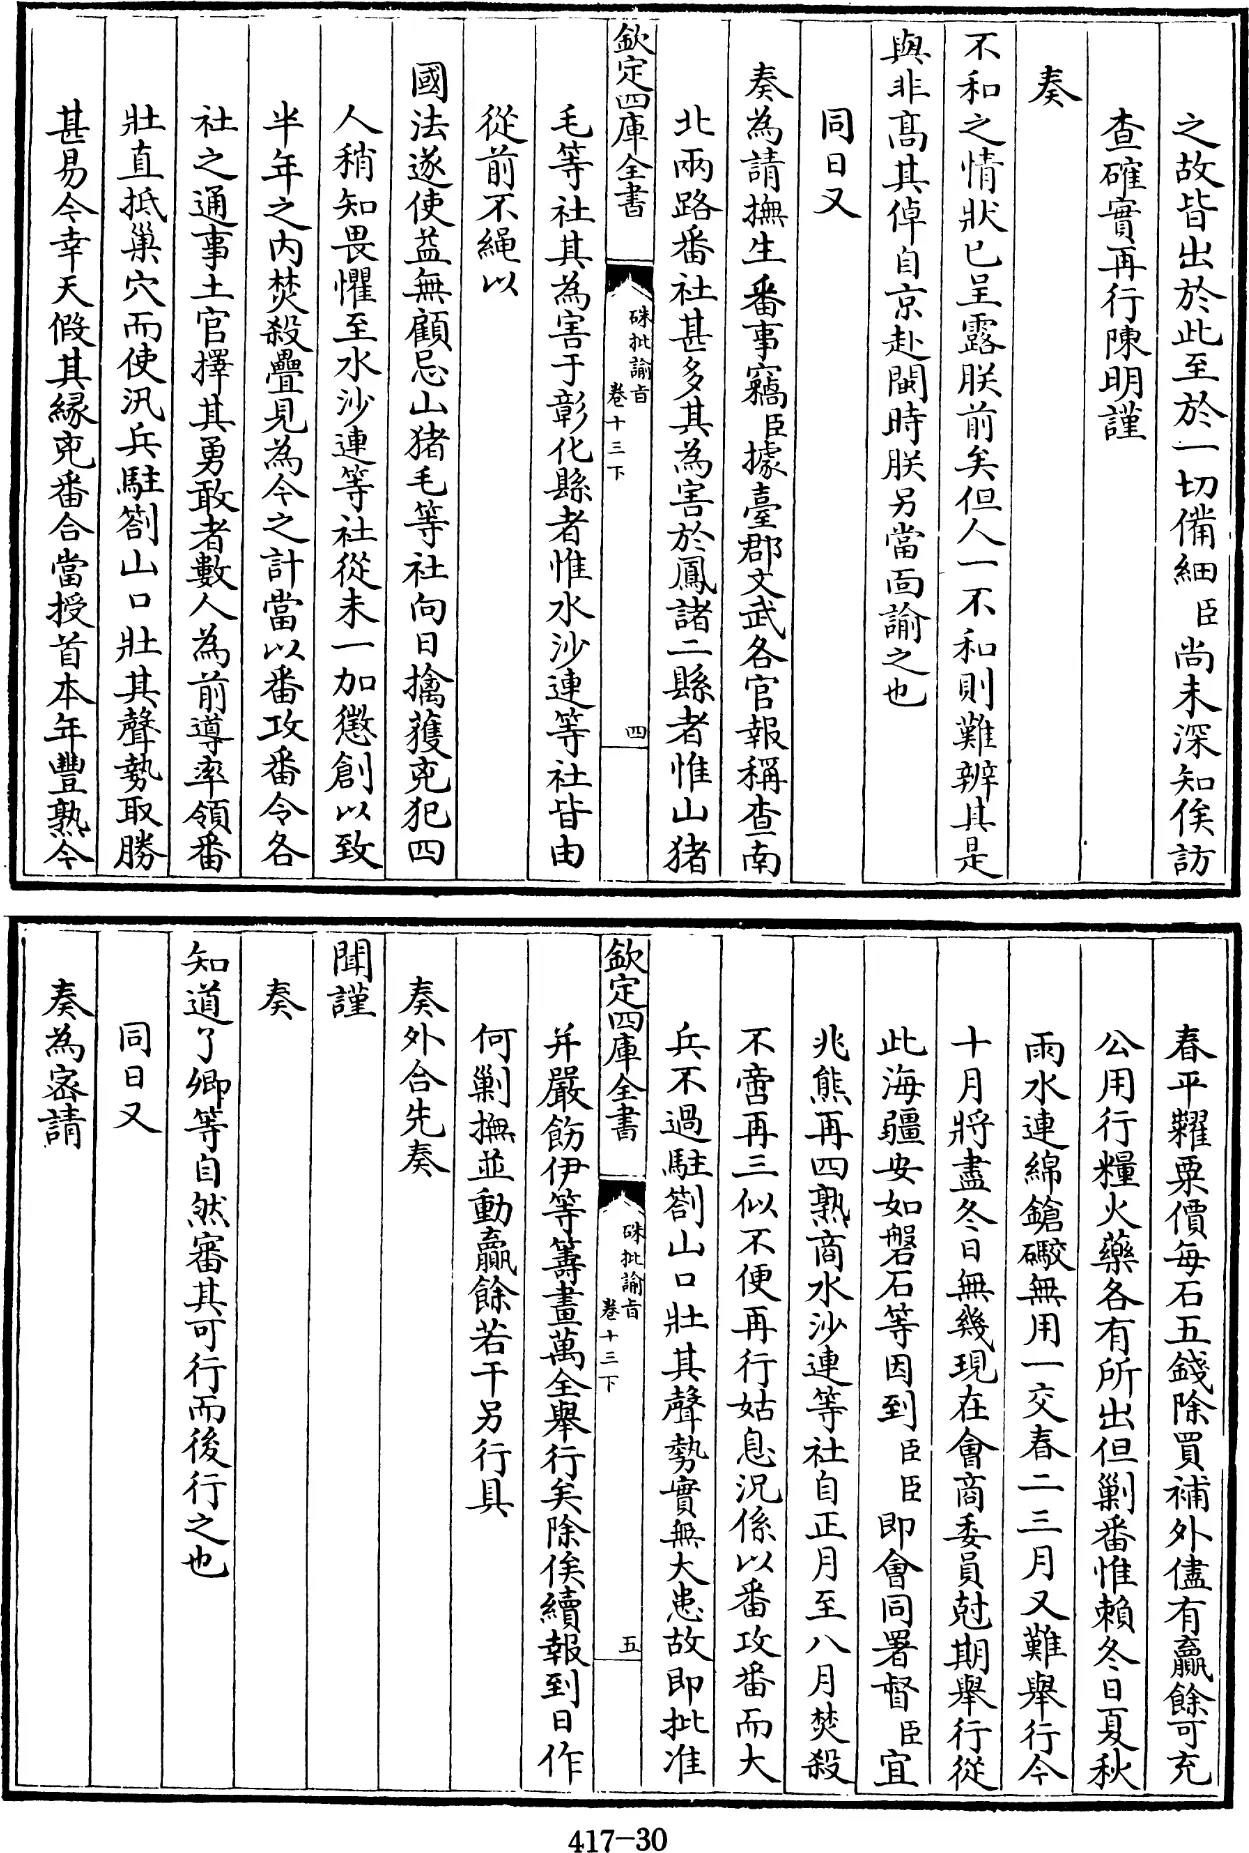 之故皆出於此至於一切備細臣尚未深知俟訪
查確實再行陳明謹
奏
不和之情狀已呈露朕前矣但人一不和則難辨其是
與非高其倬自京赴閩時朕另當面諭之也
同日又
奏為請撫生番事竊臣據臺郡文武各官報稱查南
北兩路番社甚多其為害於鳳諸二縣者惟山猪
欽定四庫全書
硃批諭旨
卷十三下
四
毛等社其為害于彰化縣者惟水沙連等社皆由
從前不繩以
國法遂使益無顧忌山猪毛等社向日擒獲兇犯四
人稍知畏懼至水沙連等社從未一加懲創以致
半年之內焚殺疊見為今之計當以番攻番令各
社之通事土官擇其勇敢者數人為前導率領番
壯直抵巢穴而使汛兵駐劄山口壯其聲勢取勝
甚易今幸天假其緣兇番合當授首本年豐熟今
春平糶粟價每石五錢除買補外儘有贏餘可充
公用行糧火藥各有所出但剿番惟賴冬日夏秋
雨水連綿鎗礮無用一交春二三月又難舉行今
十月將盡冬日無幾現在會商委員尅期舉行從
此海疆安如磐石等因到臣臣即會同署督臣宜
兆熊再四熟商水沙連等社自正月至八月焚殺
不啻再三似不便再行姑息況係以番攻番而大
兵不過駐劄山口壯其聲勢實無大患故即批准
欽定四庫全書
硃批諭旨
卷十三下
五
并嚴飭伊等籌畫萬全舉行矣除俟續報到日作
何剿撫並動贏餘若干另行具
奏外合先奏
聞謹
奏
知道了卿等自然審其可行而後行之也
同日又
奏為密請
417-30